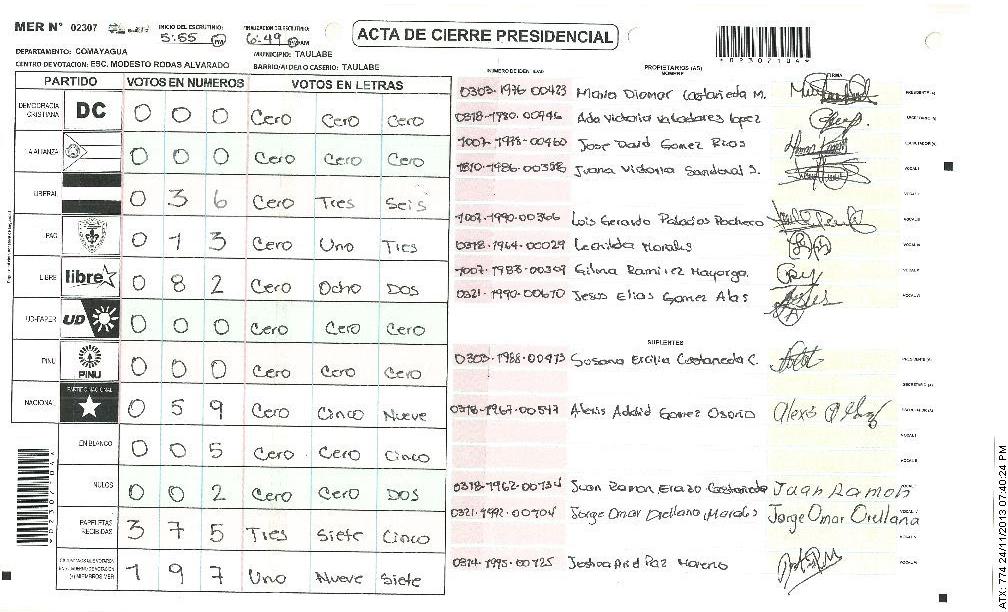 MER N° 02307 INICIO DEL ESCRUTINIO: 5:55 PM 6:49 PM ACTA DE CIERRE PRESIDENCIAL
DEPARTAMENTO: COMAYAGUA MUNICIPIO: TAULABE
CENTRO DE VOTACION: ESC. MODESTO RODAS ALVARADO BARRIO/ALDEA O CASERIO: TAULABE
PARTIDO VOTOS EN NUMEROS VOTOS EN LETRAS
DEMOCRACIA CRISTIANA DC 0 0 0 Cero Cero Cero
LA ALIANZA 0 0 0 Cero Cero Cero
LIBERAL 0 3 6 Cero Tres Seis
PAC 0 1 3 Cero Uno Tres
LIBRE libre 0 8 2 Cero Ocho DOS
UD-FAPER UD 0 0 0 Cero Cero Cero
PINU PINU 0 0 0 Cero Cero Cero
NACIONAL PARTIDO NACIONAL 0 5 9 Cero Cinco Nueve
EN BLANCO 0 0 5 Cero Cero Cinco
NULOS 0 0 2 Cero Cero DOS
PAPELETAS RECIBIDAS 3 7 5 Tres Siete Cinco
1 9 7 Uno Nueve Siete
NUMERO DE IDENTIDAD PROPIETARIOS (AS) NOMBRE FIRMA
0303-1976-00423 Maria Diomar Castañeda M. PRESIDENTE (A)
0318-1980-00446 Ada Victoria Valladares Lopez SECRETARIO (A)
1007-1978-00460 Jose David Gomez Rios ESCRUTADOR (A)
1810-1986-00358 Juana Victoria Sandoval S. VOCAL I
1007-1990-00366 Luis Gerardo Palacios Pacheco
0318-1964-00029 Leonilda Morales
1007-1983-00309 Gilma Ramirez Mayorga.
0321-1990-00670 Jesus Elias Gomez Alas
SUPLENTES
0303-1988-00473 Susana Ercilia Castaneda C. PRESIDENTE (A)
SECRETARIO (A)
0318-1967-00547 Alexis Addid Gomez Osorio ESCRUTADOR (A)
0318-1962-00734 Juan Ramon Erazo Castañeda Juan Ramon
0321-1992-00704 Jorge Omar Orellana Morales Jorge Omar Orellana
0314-1995-00725 Joshua Arid Paz Moreno
ATX: 774 24/11/2013 07:40:24 PM